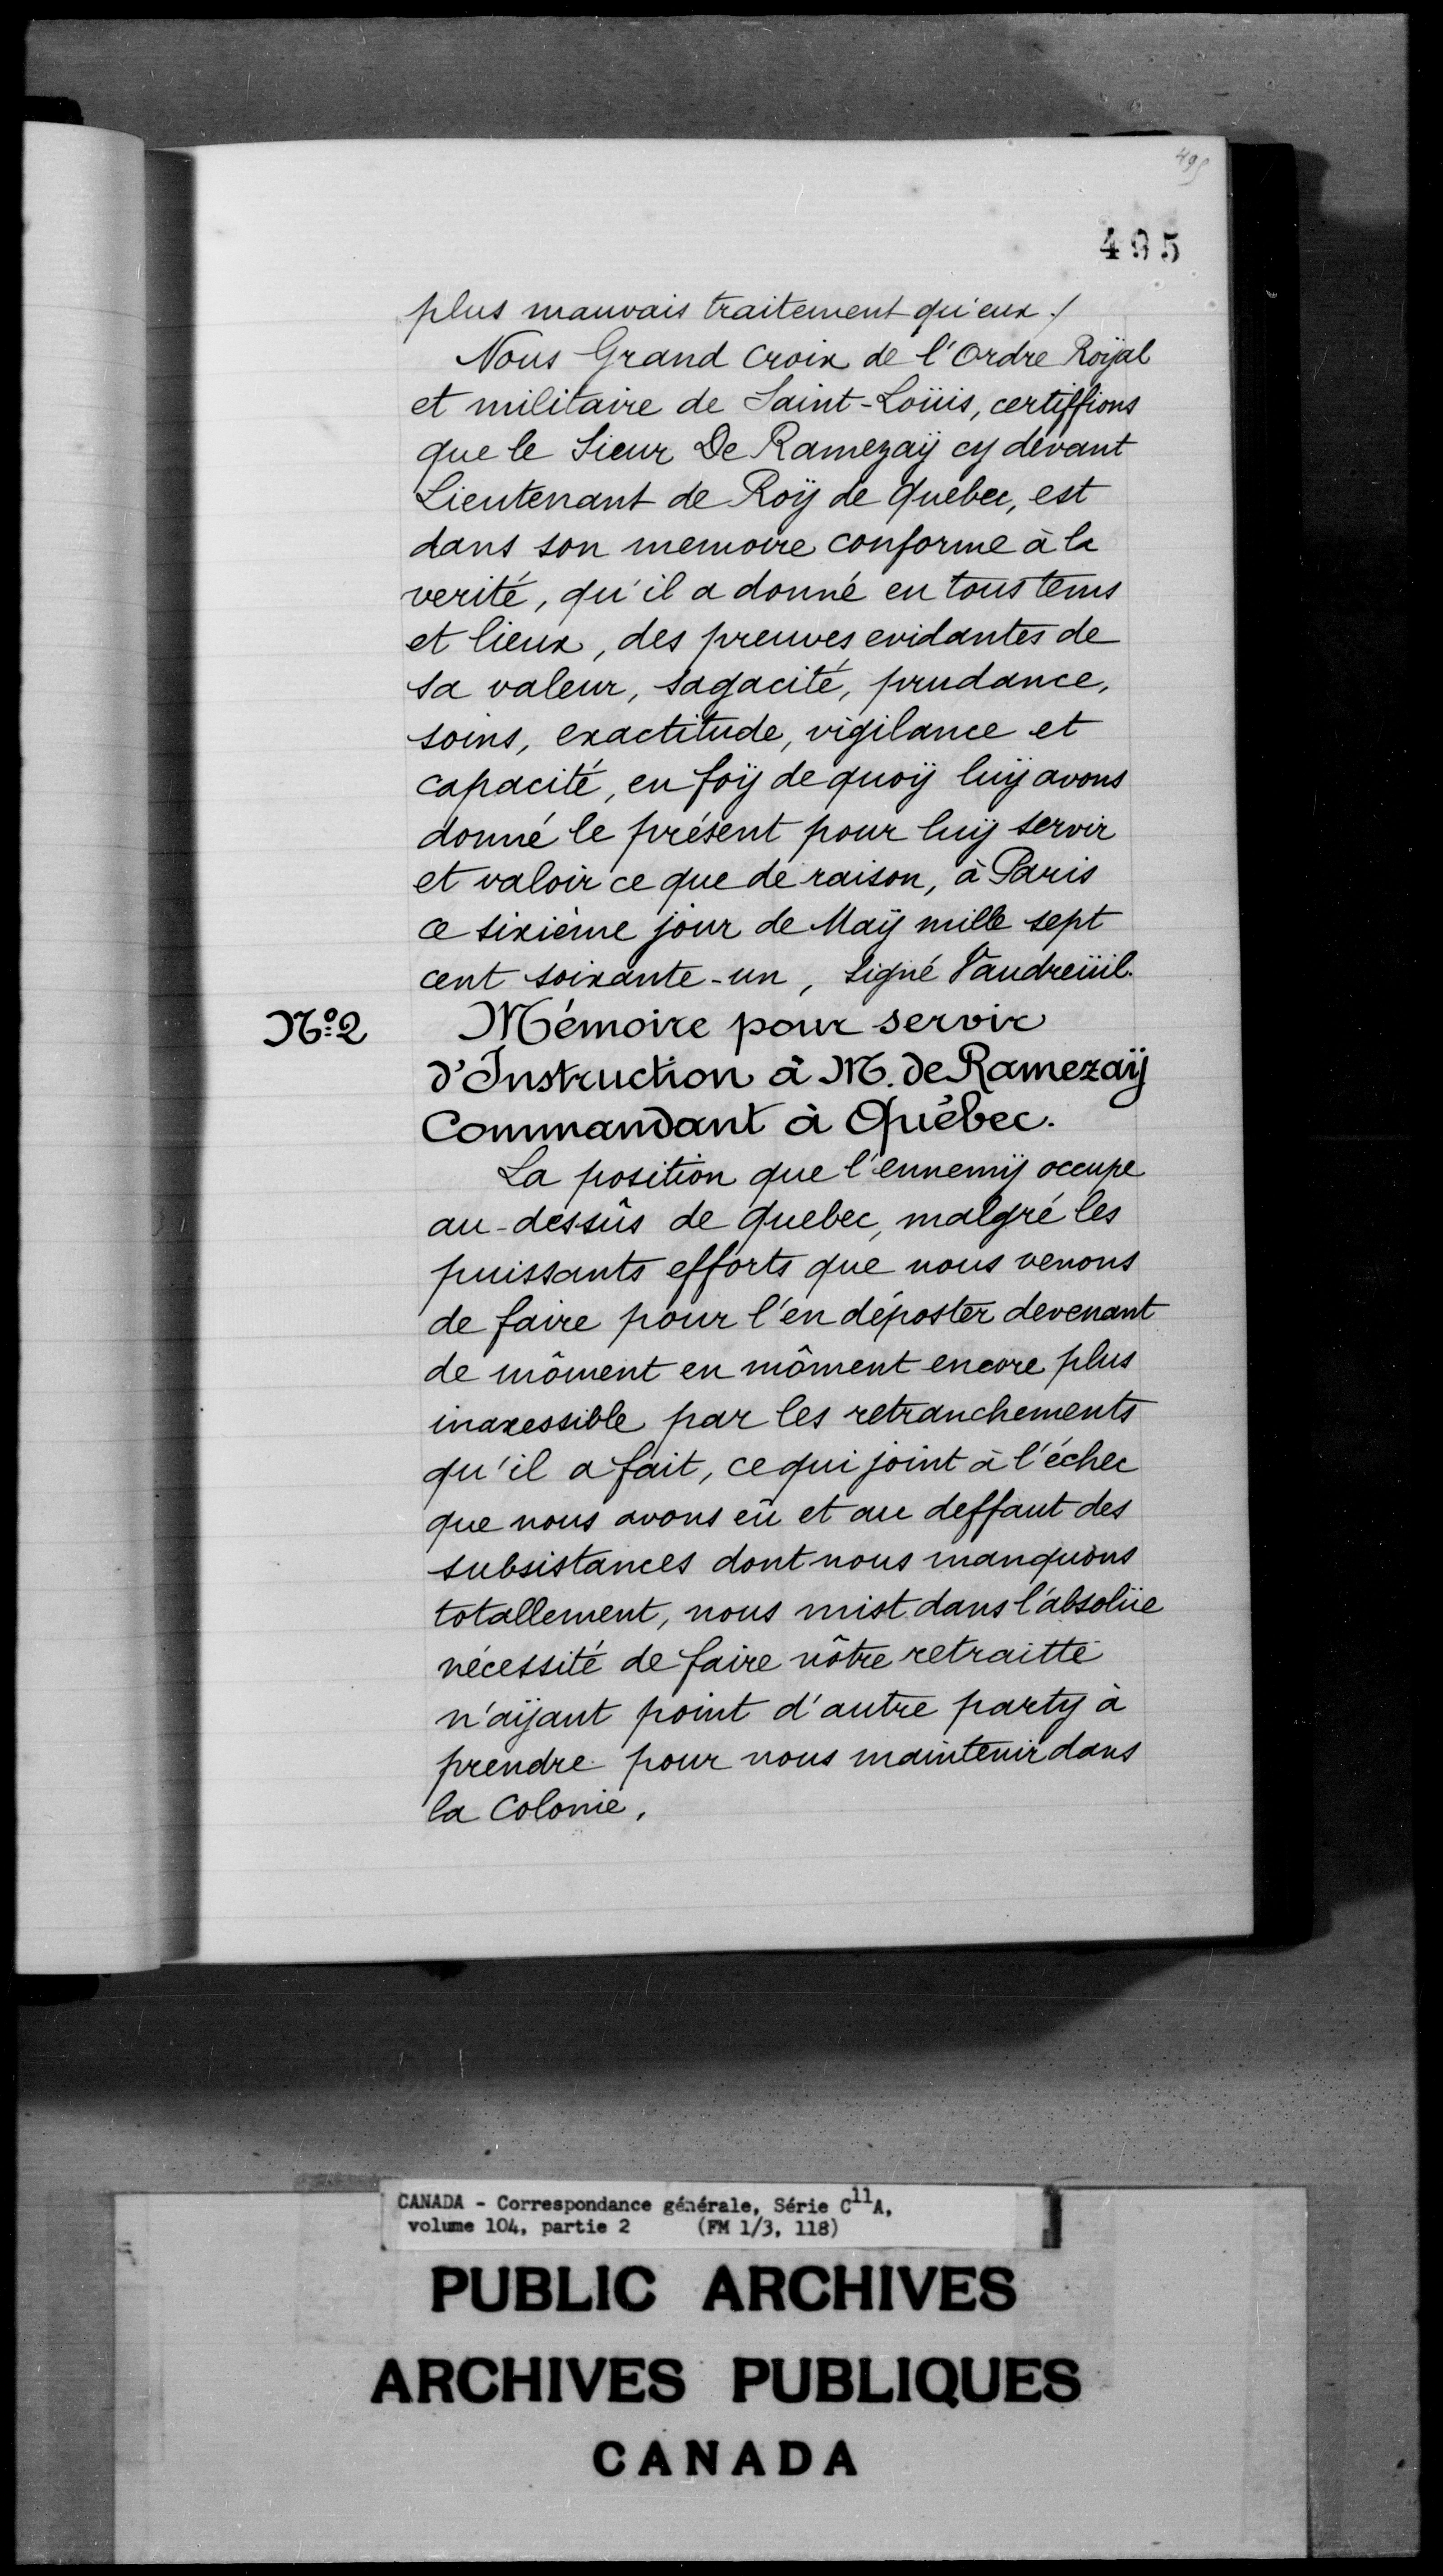 495
495
plus mauvais traitement qu'eux./
Nous Grand Croix de l'Ordre Roÿal
et militaire de Saint-Loüis, certiffions
que le Sieur De Ramezaÿ cy devant
Lieutenant de Roÿ de Québec, est
dans son memoire conforme à la
verité, qu'il a donné en tous tems
et lieux, des preuves evidantes de
sa valeur, sagacité, prudance,
soins, exactitude, vigilance et
capacité, en foÿ de quoÿ luÿ avons
donné le présent pour luÿ servir
et valoir ce que de raison, à Paris
ce sixième jour de Maÿ mille sept
cent soixante-un, signé Vaudreüil.
No. 2 Mémoire pour servir
d'Instruction à M. de Ramezaÿ
Commandant à Québec.
La position que l'ennemÿ occupe
au-dessûs de Quebec, malgré les
puissants efforts que nous venons
de faire pour l'en déposter devenant
de môment en môment encore plus
inaxessible par les retranchements
qu'il a fait, ce qui joint à l'échec
que nous avons eü et au deffaut des
subsistances dont nous manquons
totallement, nous mist dans l'absolüe
nécessité de faire nôtre retraitte
n'aÿant point d'autre party à
prendre pour nous maintenir dans
la Colonie.
CANADA - Correspondance générale, Série C11A,
volume 104, partie 2 (FM 1/3, 118)
PUBLIC ARCHIVES
ARCHIVES PUBLIQUES
CANADA